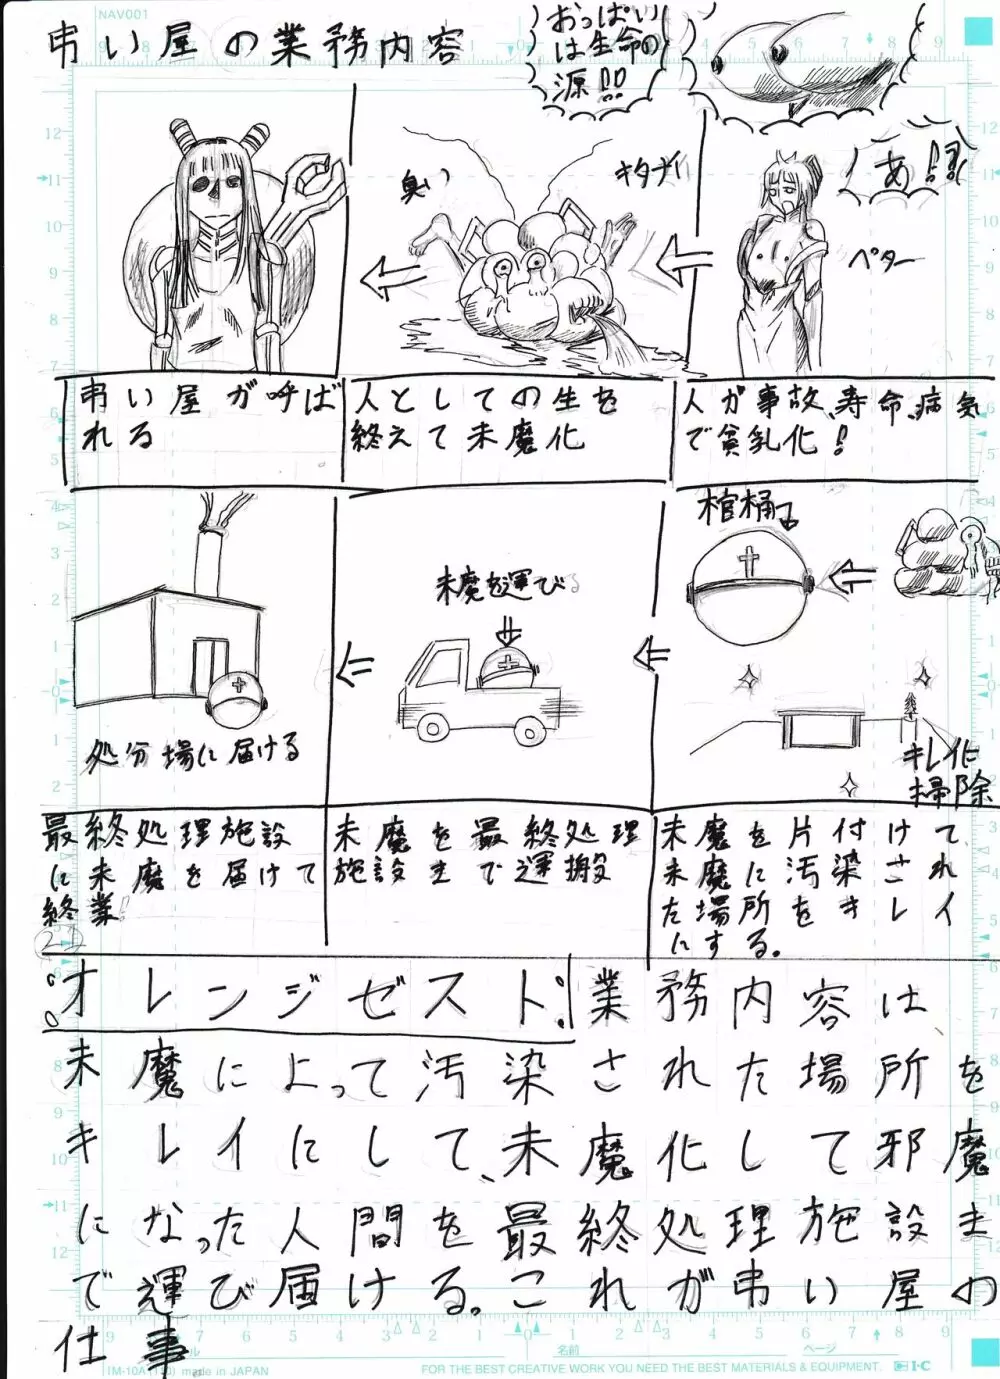 弔い屋の業務内容
おっぱい
は生命の
源!!
あ!!
ペター
キタナイ
臭い
人が事故、寿命、病気
で貧乳化!
人としての生を
終えて未魔化
弔い屋が呼ば
れる
棺桶
キレイに
掃除
未魔を運びる
処分場に届ける
未魔を片付けて
未魔に汚染され
た場所をキレイ
にする。
未魔を最終処理
施設まで運搬
最終処理施設
に未魔を届けて
終業!
オレンジゼスト:業務内容は
未魔によって汚染された場所を
キレイにして、未魔化して邪魔
になった人間を最終処理施設ま
で運び届ける。これが弔い屋の
仕事
NAV001
made in JAPAN
名前
ページ
FOR THE BEST CREATIVE WORK YOU NEED THE BEST MATERIALS & EQUIPMENT.
I·C